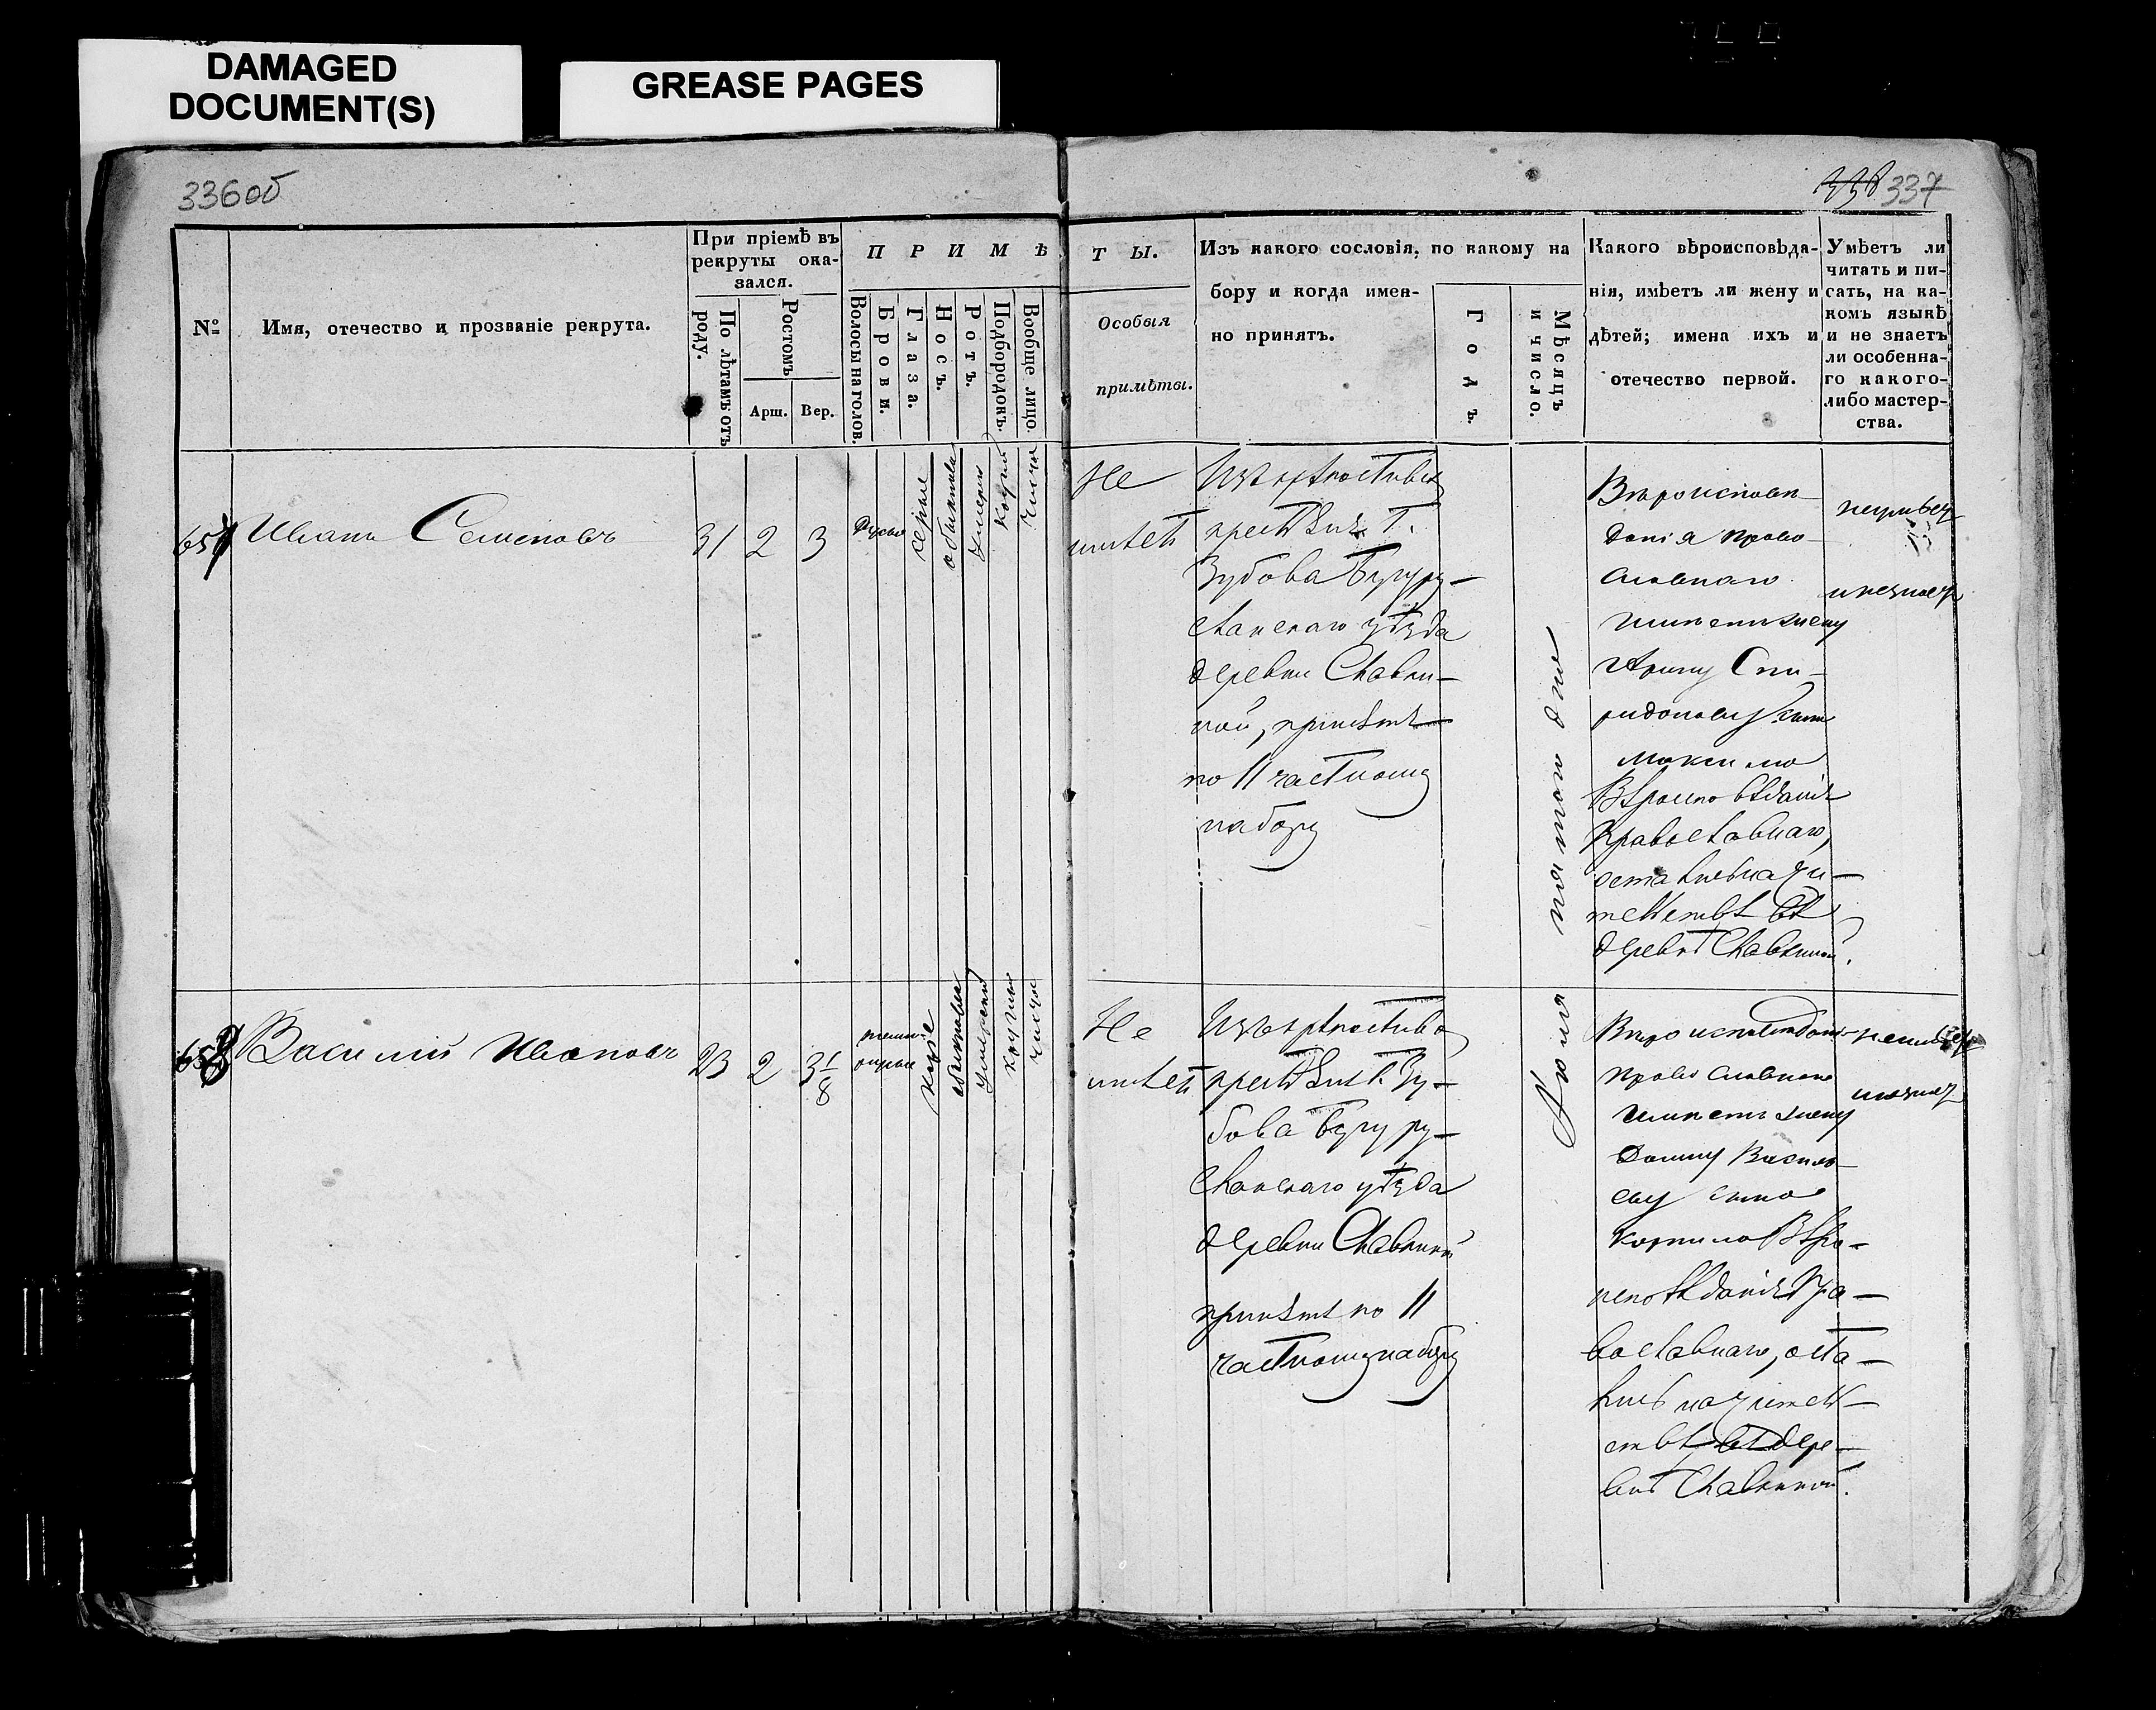 DAMAGED
DOCUMENT(S)
GREASE PAGES
336об
338 337
№
Имя, отечество и прозваніе рекрута.
При пріемѣ въ
рекруты ока-
зался.
По лѣтамъ отъ
роду.
Ростомъ
Арш.
Вер.
ПРИМѢ
Волосы на голов.
Брови.
Глаза.
Носъ.
Ротъ.
Подбородокъ.
Вообще лицо.
ТЫ.
Особыя
примѣты.
Изъ какого сословія, по какому на
бору и когда имен-
но принятъ.
Годъ.
Мѣсяцъ
и число.
Какого вѣроисповѣда-
нія, имѣетъ ли жену и
дѣтей; имена ихъ и
отечество первой.
Умѣетъ ли
читать и пи-
сать, на ка-
комъ языкѣ
и не знаетъ
ли особенна-
го какого-
либо мастер-
ства.
657
Иванъ Семеновъ
31
2
3
Русые
серые
обыкнове
умерен
круглый
чисто
Не
имѣетъ
Изъ крѣпостныхъ
крестьянъ Г.
Зубова Бугуру-
сланскаго уѣзда
деревни Славки-
ной, принятъ
по 11 частному
набору
Іюня пятого дня
Вероисповѣ
данія право
славнаго
имеетъ жену
Арину Спи-
ридонову сына
Максима
Вѣроисповѣданія
православнаго,
оставшись на жи-
тельствѣ въ
деревнѣ Славкиной.
неумѣет
и незнает
658
Василий Ивановъ
23
2
3 1/8
темно
русые
карие
обыкновен
умеренный
круглый
чисто
Не
имѣетъ
Изъ крѣпостныхъ
крестьянъ Г. Зу-
бова Бугуру-
сланскаго уѣзда
деревни Славкиной
принятъ по 11
частному набору
Вероисповѣдани
православнаго
имеетъ жену
Домну Василь-
еву сына
Корнила Вѣро-
исповѣданія пра-
вославнаго, оста-
вшись на жительс-
твѣ въ дере-
внѣ Славкиной.
неумѣет
и незнает